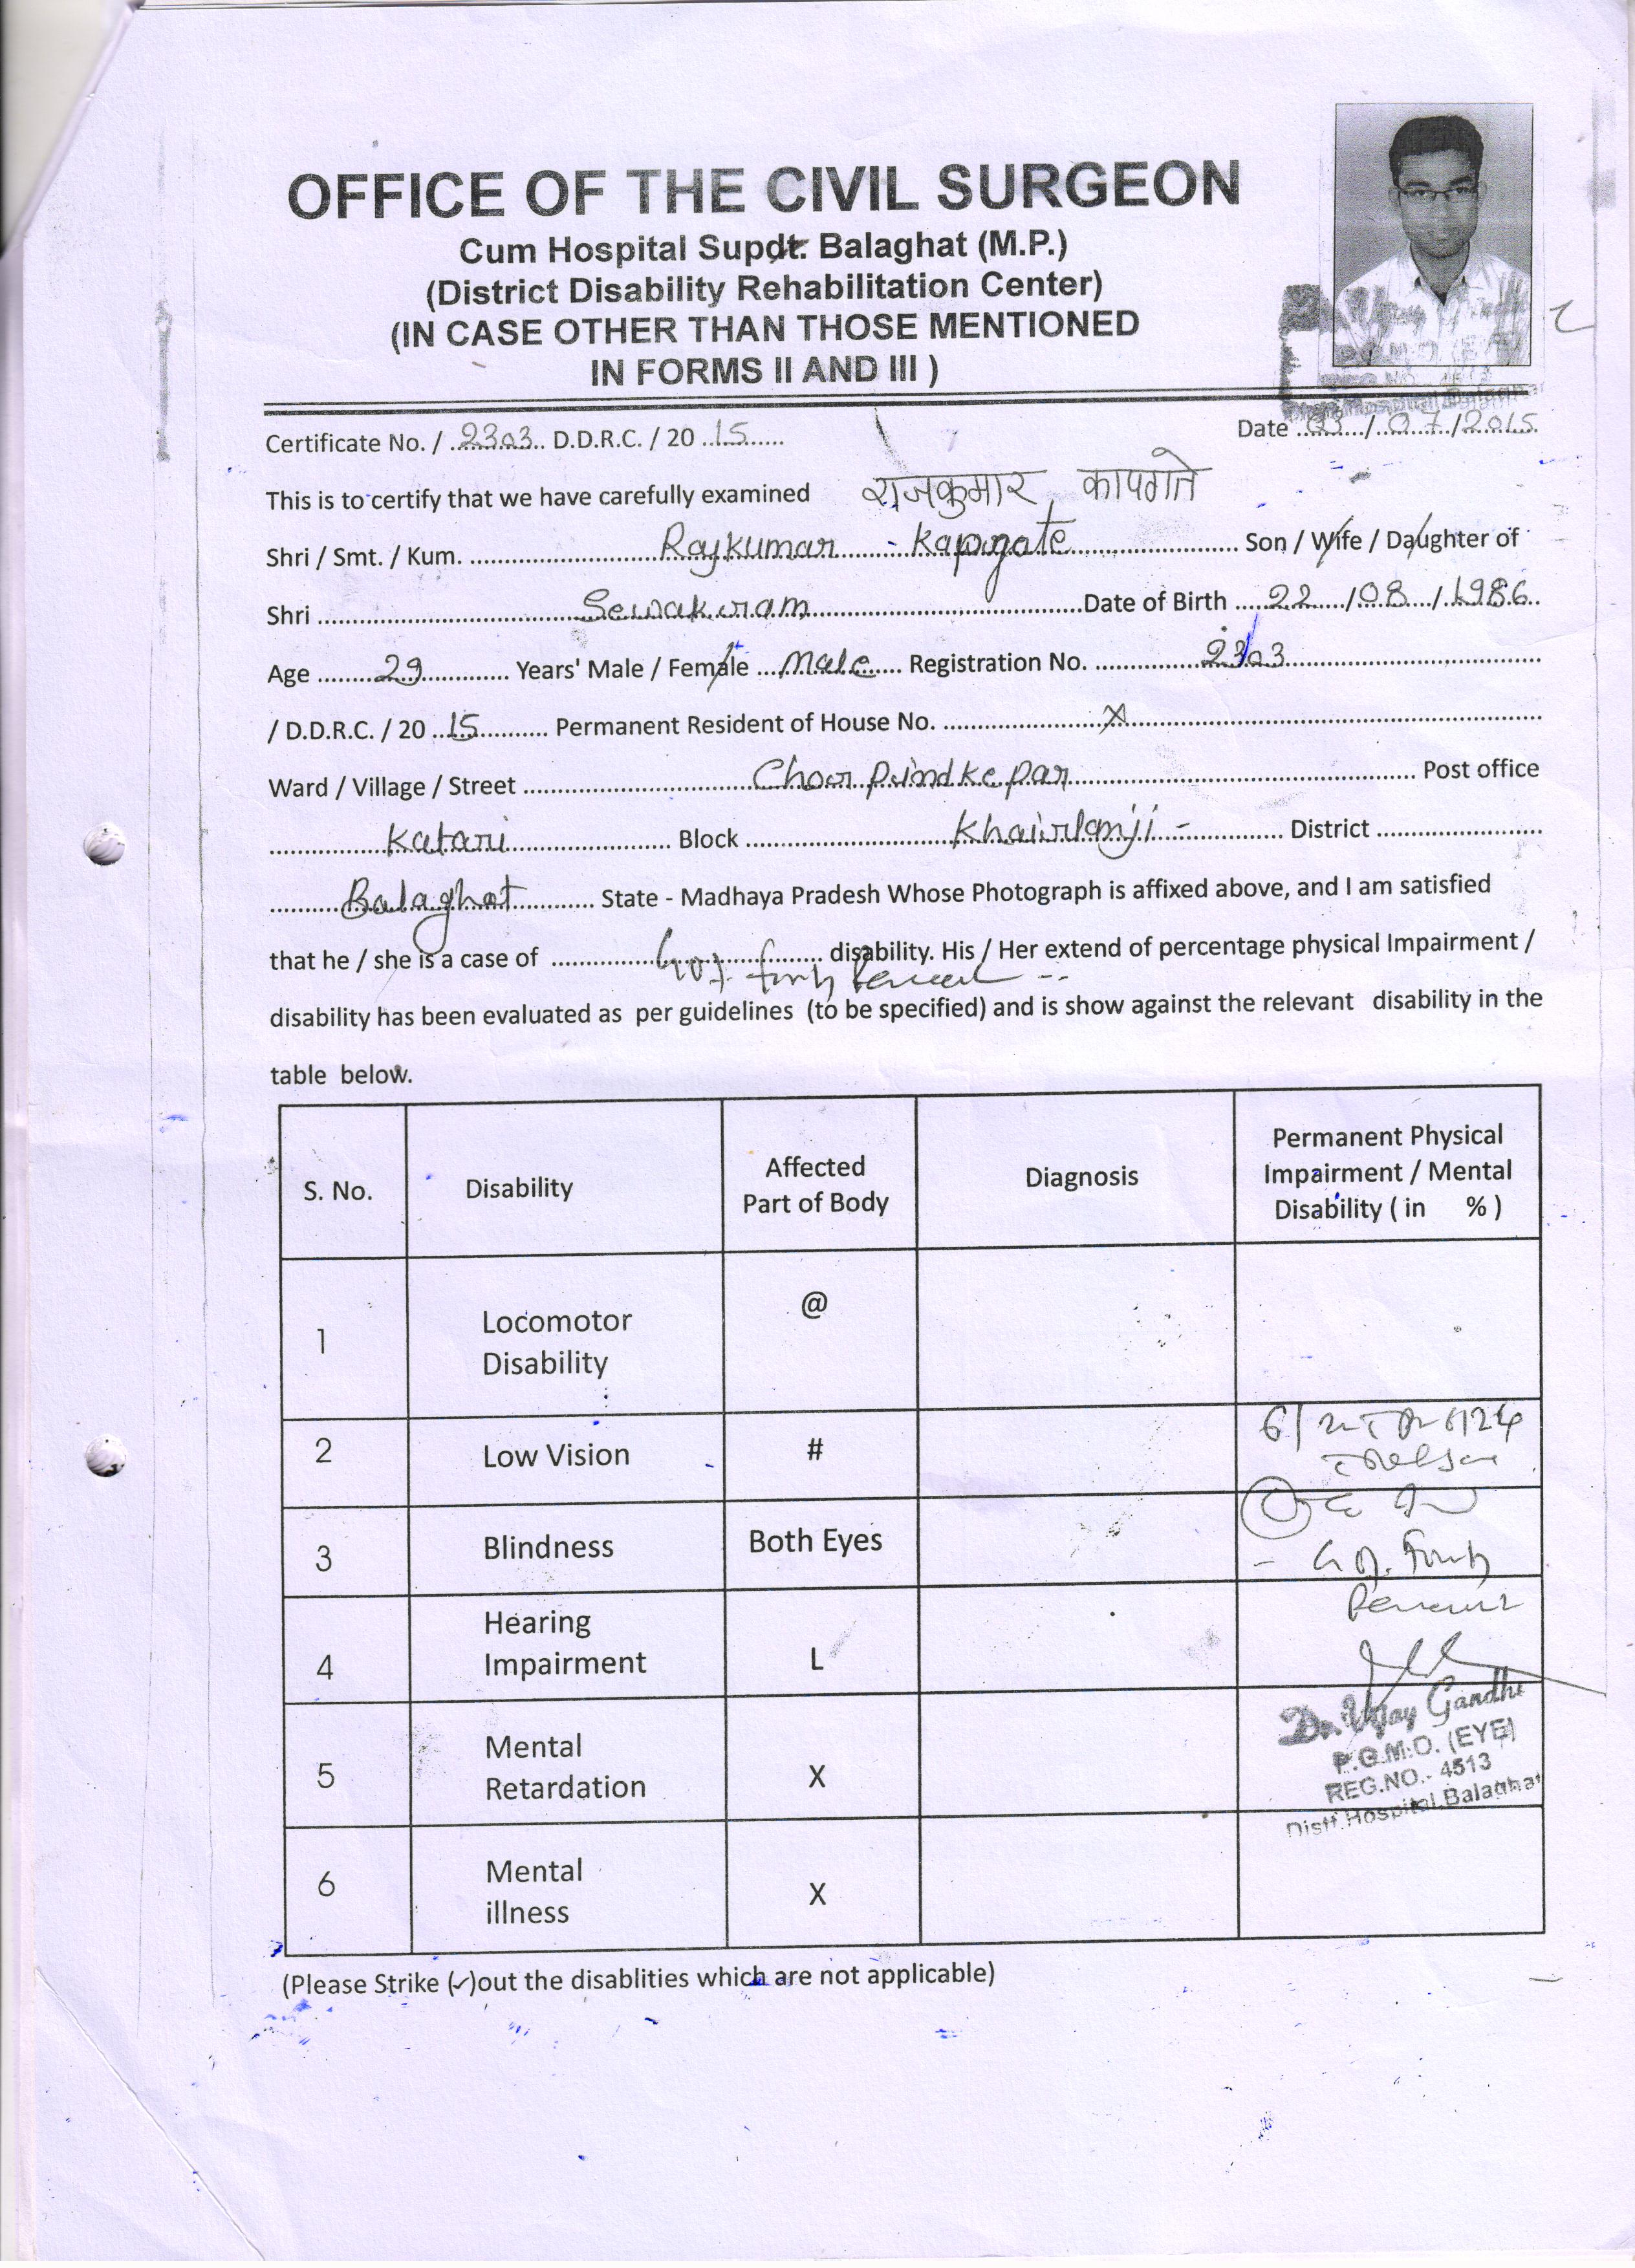 OFFICE OF THE CIVIL SURGEON
Cum Hospital Supdt. Balaghat (M.P.)
(District Disability Rehabilitation Center)
(IN CASE OTHER THAN THOSE MENTIONED
IN FORMS II AND III )
Certificate No. / 2303 D.D.R.C. / 20 15 Date 03/07/2015
This is to certify that we have carefully examined राजकुमार कापगते
Shri / Smt. / Kum. Rajkumar Kapgate Son / Wife / Daughter of
Shri Sewakram Date of Birth 22/08/1986
Age 29 Years' Male / Female Male Registration No. 2303
/ D.D.R.C. / 20 15 Permanent Resident of House No. X
Ward / Village / Street Chorpindkepar Post office
Katari Block Khairlanji - District
Balaghat State - Madhaya Pradesh Whose Photograph is affixed above, and I am satisfied
that he / she is a case of disability. His / Her extend of percentage physical Impairment /
disability has been evaluated as per guidelines (to be specified) and is show against the relevant disability in the
table below.
S. No. Disability Affected Part of Body Diagnosis Permanent Physical Impairment / Mental Disability ( in % )
1 Locomotor Disability @
2 Low Vision #
3 Blindness Both Eyes
4 Hearing Impairment L
5 Mental Retardation X
6 Mental illness X
Dr. Vijay Gandhi
P.G.M.O. (EYE)
REG.NO.- 4513
Distt. Hospital, Balaghat
(Please Strike (✓)out the disablities which are not applicable)